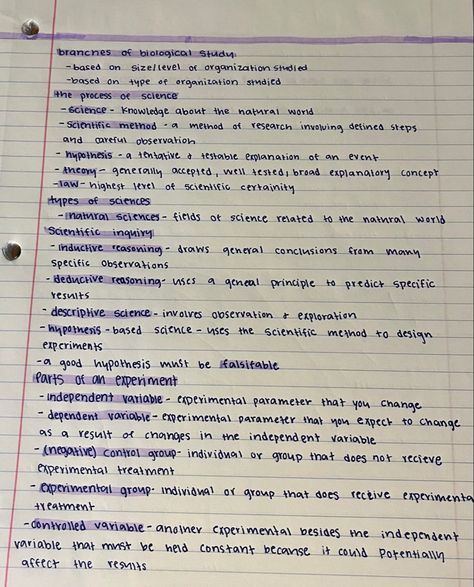 branches of biological study:
-based on size/level of organization studied
-based on type of organization studied
the process of science
-science - knowledge about the natural world
-scientific method - a method of research involving defined steps
and careful observation
-hypothesis - a tentative & testable explanation of an event
-theory - generally accepted, well tested, broad explanatory concept
-law - highest level of scientific certainity
types of sciences
-natural sciences - fields of science related to the natural world
scientific inquiry
-inductive reasoning - draws general conclusions from many
specific observations
-deductive reasoning - uses a geneal principle to predict specific
results
-descriptive science - involves observation & exploration
-hypothesis - based science - uses the scientific method to design
experiments
-a good hypothesis must be falsifable
Parts of an experiment
-independent variable - experimental parameter that you change
-dependent variable - experimental parameter that you expect to change
as a result of changes in the independent variable
-(negative) control group - individual or group that does not recieve
experimental treatment
-experimental group - individual or group that does receive experimenta
treatment
-controlled variable - another experimental besides the independent
variable that must be held constant because it could potentially
affect the results